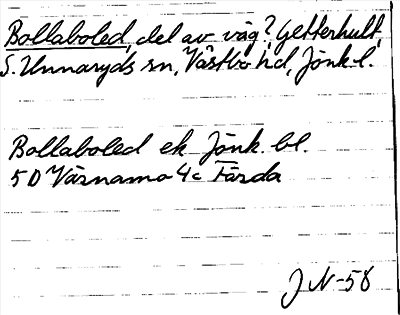 Bollaboled, del av väg? Getterhult,
S. Unnaryds sn, Västbo hd, Jönk. l.
Bollaboled ek Jönk. bl.
5D Värnamo 4c Färda
J N-58